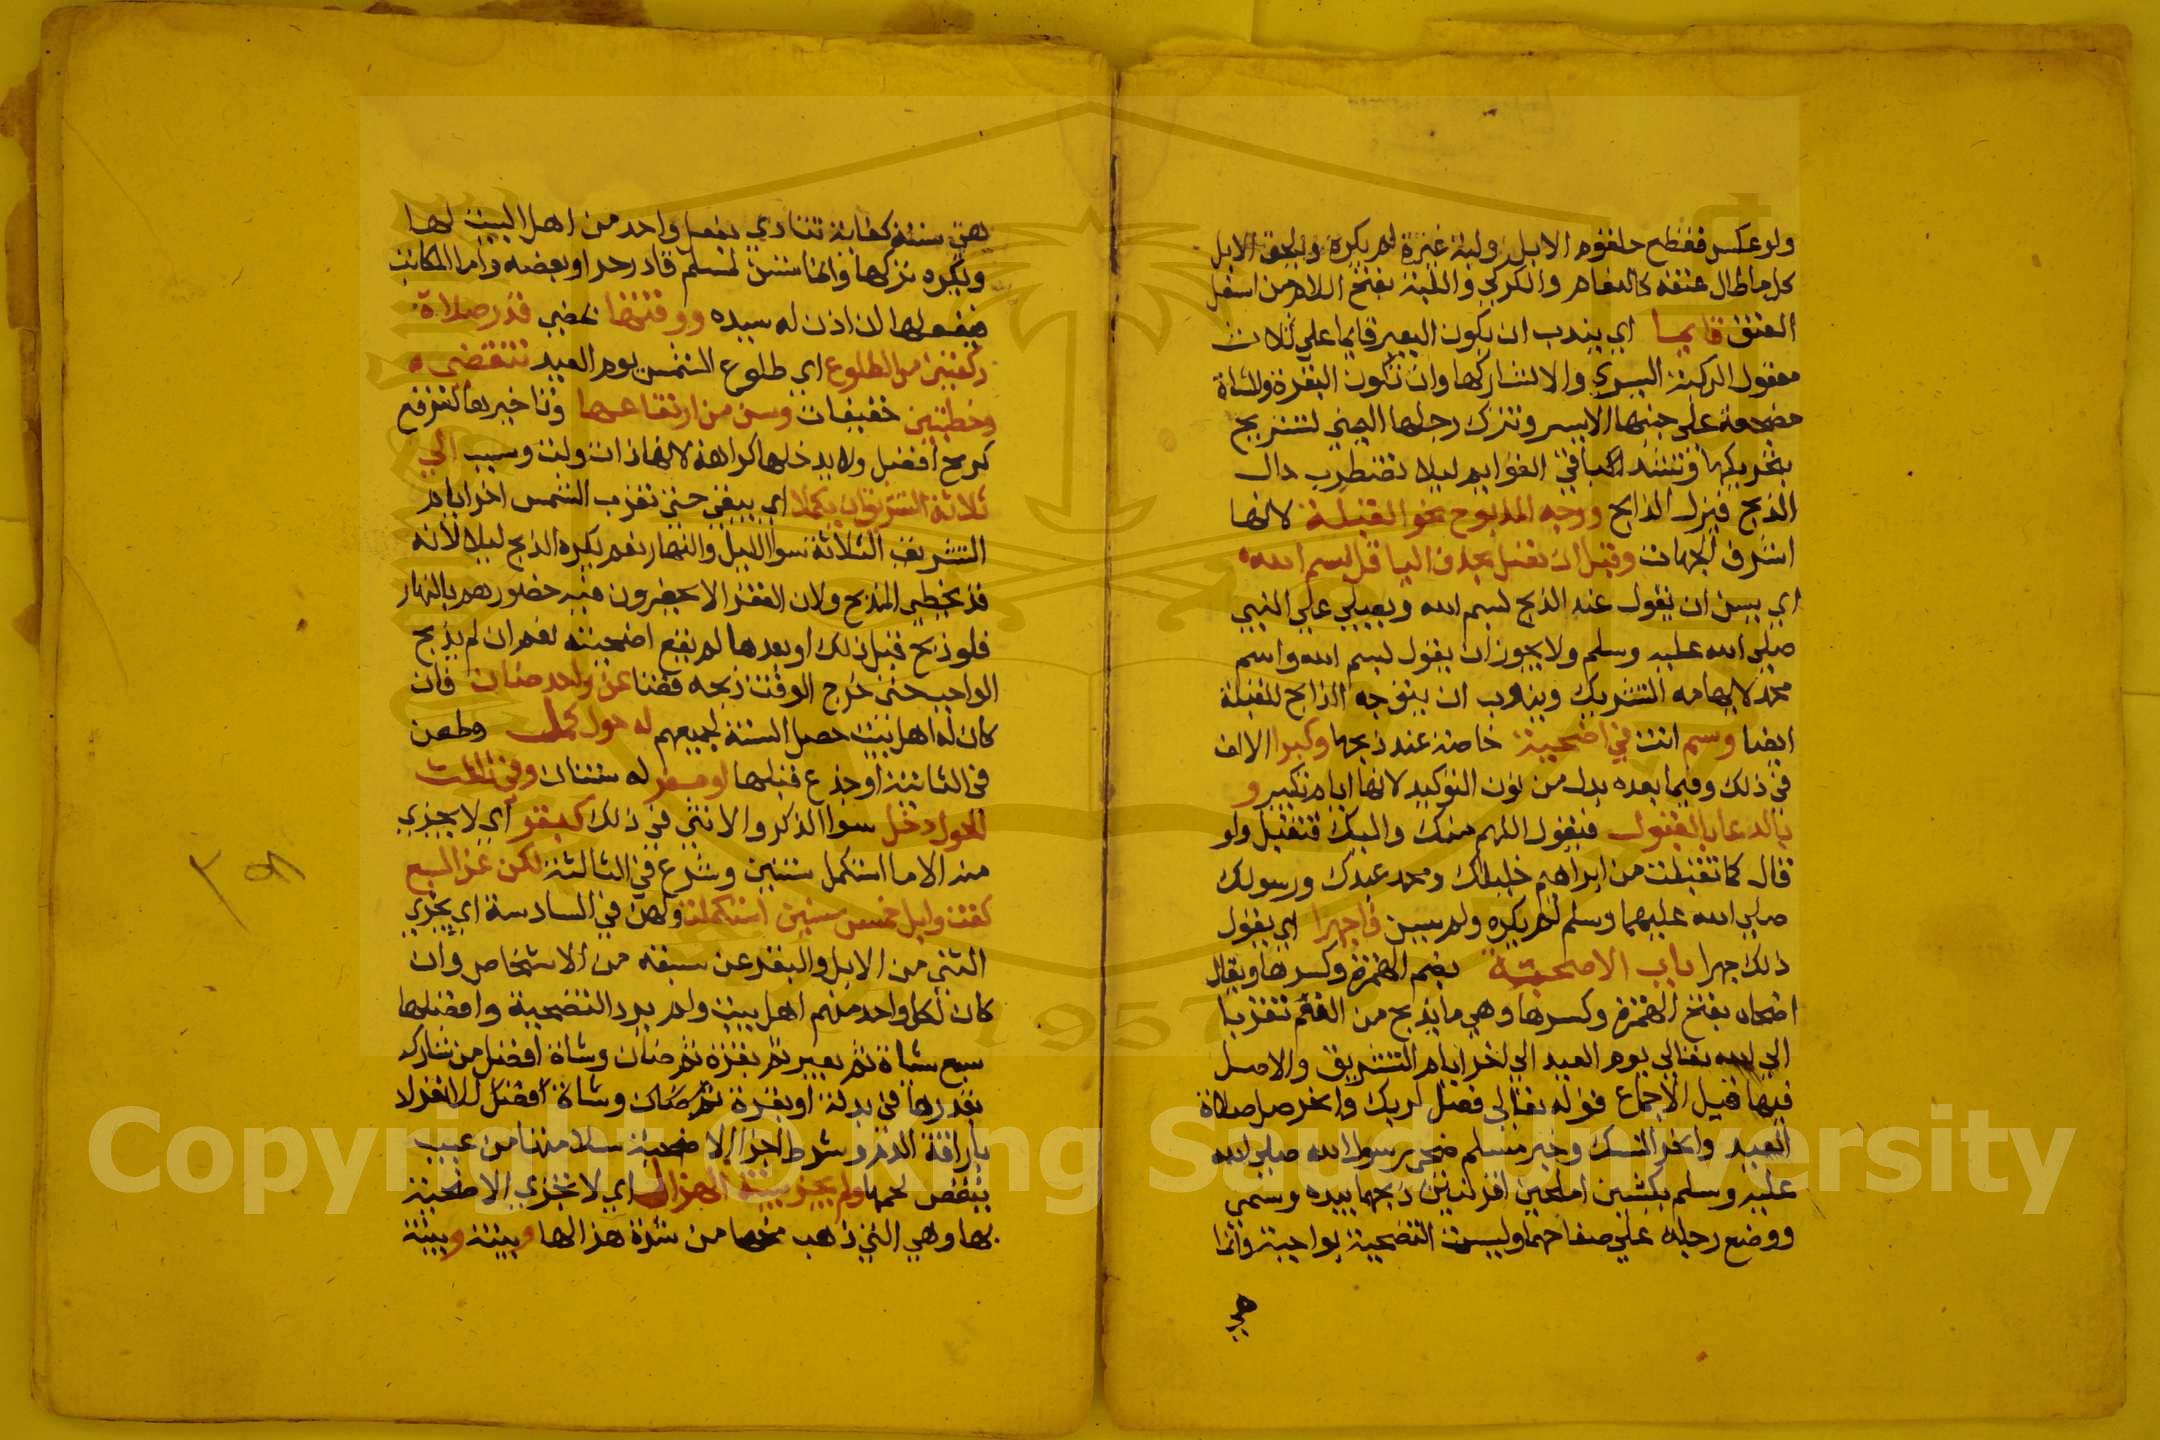 ولو عكس فقطع حلقوم الابل ولبة غيرها لم يكره ويلحق الابل
كل ما طال عنقه كالنعام والكركي واللبة بفتح اللام من اسفل
العنق قايما اي يندب ان يكون البعير قايما علي ثلاث
معقول الركبة اليسري والا فباركا وان تكون البقرة والشاة
مضجعة علي جنبها الايسر وتترك رجلها اليمني لتستريح
بتحريكها وتشد باقي القوايم ليلا تضطرب حال
الذبح فيزل الذابح ووجه المذبوح نحو القبلة لانها
اشرف الجهات وقبل ان تصل بحذف اليا قل بسم الله
اي يسن ان يقول عند الذبح بسم الله ويصلي علي النبي
صلي الله عليه وسلم ولا يجوز ان يقول بسم الله واسم
محمد لايهامه التشريك ويندب ان يتوجه الذابح للقبلة
ايضا وسم انت في اضحية خاصة عند ذبحها وكبرا الالف
في ذلك وفيما بعده بدل من نون التوكيد لانها ايام تكبير و
بالدعا بالقبول فيقول اللهم منك واليك فتقبل ولو
قال كما تقبلت من ابراهيم خليلك ومحمد عبدك ورسولك
صلي الله عليهما وسلم لم يكره ولم يسن فاجهرا اي بقول
ذلك جهرا باب الاضحية بضم الهمزة وكسرها ويقال
اضحاه بفتح الهمزة وكسرها وهي ما يذبح من الغنم تقربا
الي الله تعالي يوم العيد الي اخر ايام التشريق والاصل
فيها قبل الاجماع قوله تعالي فصل لربك وانحر صل صلاة
العيد وانحر النسك وخبر مسلم ضحي رسول الله صلي الله
عليه وسلم بكبشين املحين اقرنين ذبحهما بيده وسمي
ووضع رجله علي صفاحهما وليست التضحية بواجبة وانما
هي
هي سنة كفاية تتادي بفعل واحد من اهل البيت لها
ويكره تركها وانما تسن لمسلم قادر حر او بعضه واما المكاتب
فيفعلها ان اذن له سيده ووقتها بمضي قدر صلاة
ركعتين من الطلوع اي طلوع الشمس يوم العيد تنقضي
وخطبتين خفيفات وسن من ارتفاعها وتاخيرها لترتفع
كرمح افضل ولا يدخلها كراهة لانها ذات وقت وسبب الي
ثلاثة التشريق ان يكملا اي يبقي حتي تغرب الشمس اخر ايام
التشريق الثلاثة سوا الليل والنهار نعم يكره الذبح ليلا لانه
قد يخطي المذبح ولان الفقرا لا يحضرون فيه حضورهم بالنهار
فلو ذبح قبل ذلك او بعدها لم يقع اضحيته نعم ان لم يذبح
الواجب حتي خرج الوقت ذبحه قضا عن واحد ضان فان
كان له اهل بيت حصل السنة لجميعهم له حول كمل وطعن
في الثانية او جذع قبلها او معز له سنتان وفي ثالث
الحول دخل سوا الذكر والانثي في ذلك كبقر اي لا يجزي
منه الا ما استكمل سنتين وشرع في الثالثة لكن عن السبع
كفت وابل خمس سنين استكملت وطعن في السادسة اي يجزي
الثني من الابل والبقر عن سبعة من الاشخاص وان
كان لكل واحد منهم اهل بيت ولم يرد التضحية وافضلها
سبع شياة ثم بعير ثم بقرة ثم ضان وشاة افضل من شارك
بقدرها في بدنة او بقرة ثم ضان وشاة افضل للانفراد
باراقة الدم وشرط اجزا الاضحية سلامتها من عيب
ينقص لحمها ولم يجز بينة الهزال اي لا تجزي الاضحية
بها وهي التي ذهب مخها من شدة هزالها وبينة وبينة